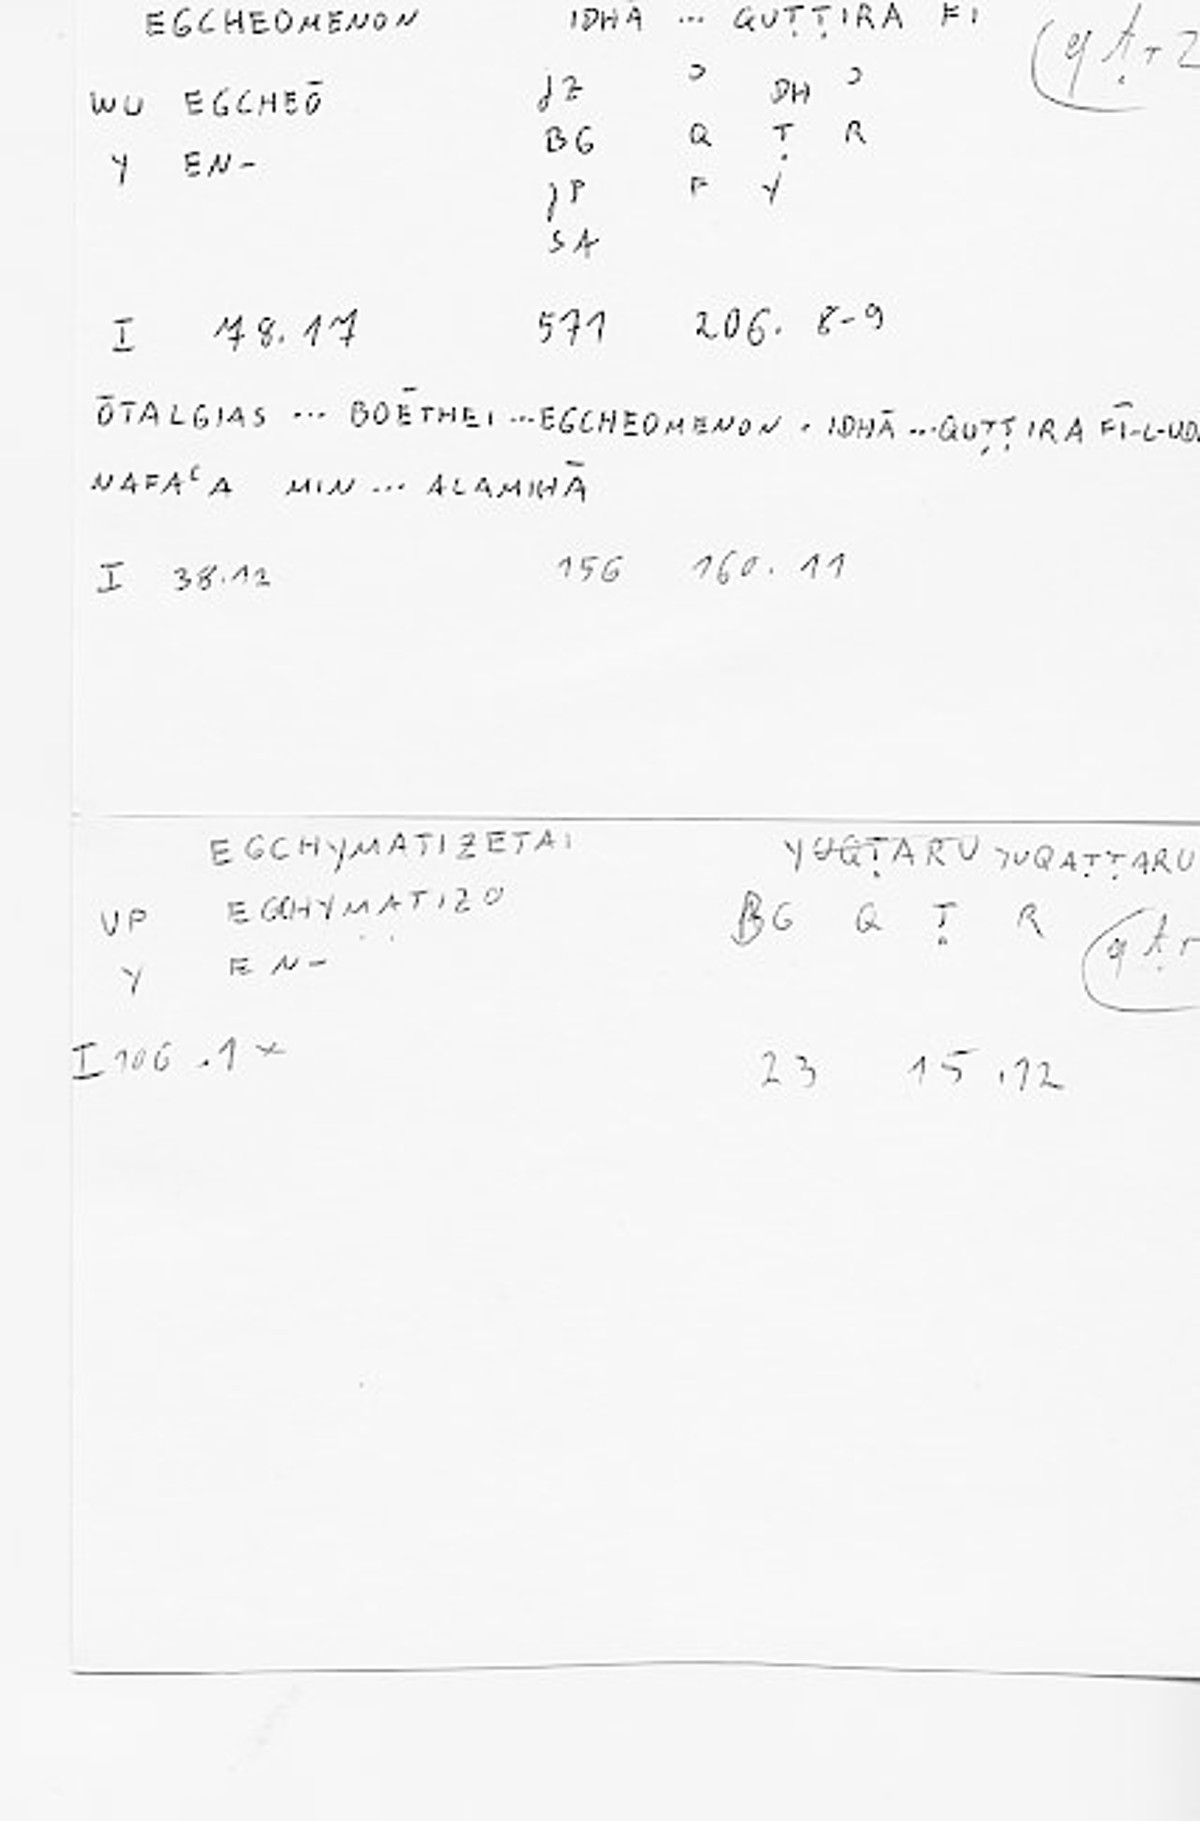 EGCHEOMENON IDHĀ ... QUṬṬIRA FI
WU EGCHEŌ JZ ʾ DH ʾ
Y EN- BG Q Ṭ R
JP F Y
SA
I 78.17 571 206. 8-9
ŌTALGIAS ... BOĒTHEI ... EGCHEOMENON . IDHĀ ... QUṬṬIRA FĪ-L-UD
NAFAʿA MIN ... ALAMIHĀ
I 38.12 156 160. 11
EGCHYMATIZETAI YUQṬARU YUQAṬṬARU
VP EGCHYMATIZO BG Q Ṭ R
Y EN-
I 106 .1 × 23 15 .12